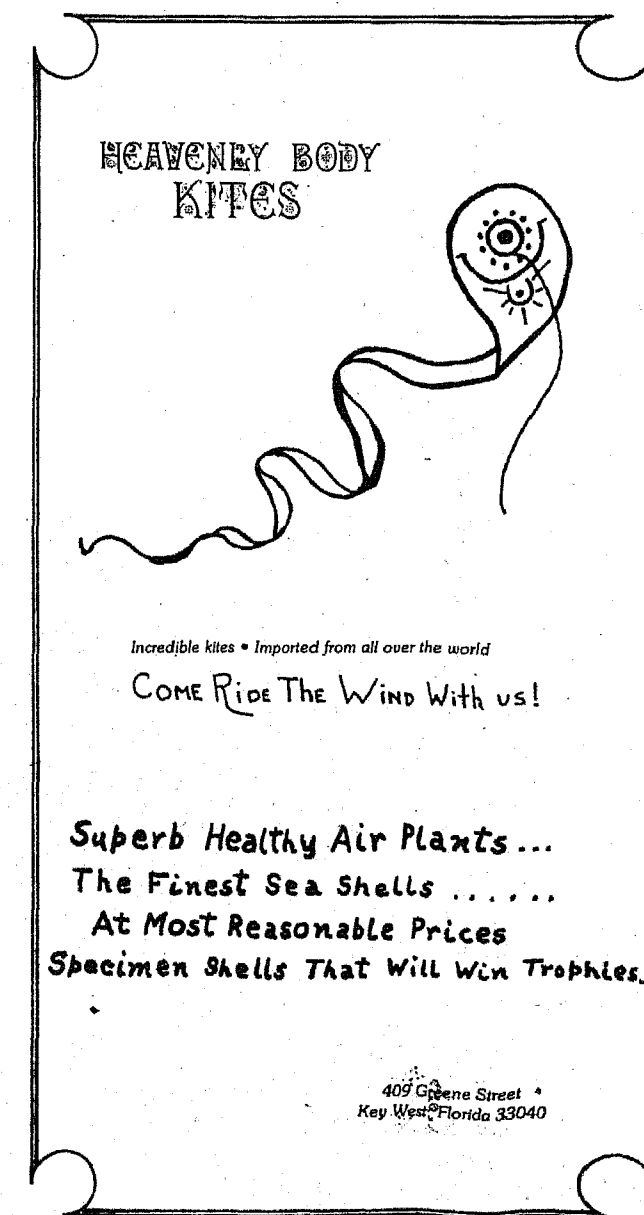 HEAVENLY BODY
KITES
Incredible kites • Imported from all over the world
COME RIDE THE WIND With us!
Superb Healthy Air Plants...
The Finest Sea Shells ......
At Most Reasonable Prices
Specimen Shells That Will Win Trophies.
409 Greene Street
Key West, Florida 33040